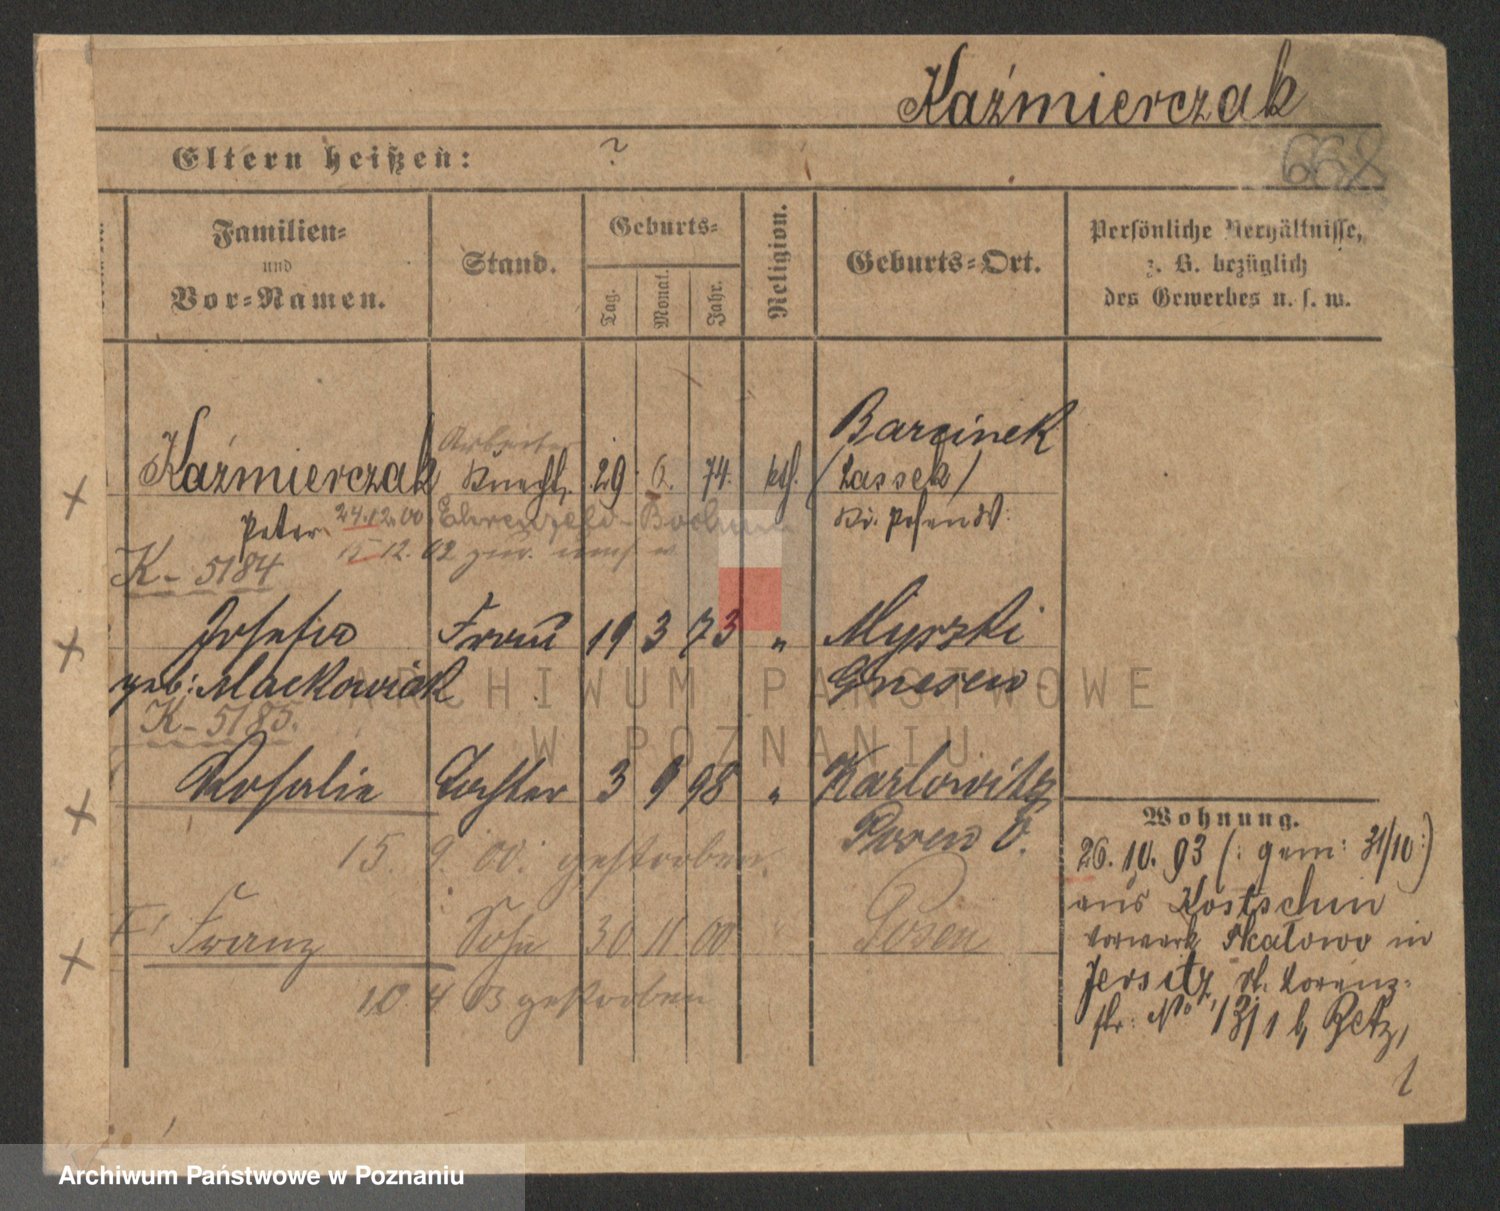 Kaźmierczak
Eltern heißen: ?
668
Familien-
und
Vor-Namen.
Stand.
Geburts-
Tag.
Monat.
Jahr.
Religion.
Geburts-Ort.
Persönliche Verhältnisse,
z. B. bezüglich
des Gewerbes u. s. w.
Arbeiter
Barcinek
Kaźmierczak Knecht. 29. 6. 74. kth. (Lassek)
Peter 24.12.00. Ehrenfeld-Bochum Kr. Posen W.
15.12.02 zur.
K-5184
Josefa Frau 19 3 73 " Myszki
geb: Mackowiak Gnesen
K-5185.
Rosalie Tochter 3 9 98 " Karlowitz
Posen O.
15. 9. 00. gestorben.
Franz Sohn 30 11 00 " Posen
10. 4 03 gestorben
Wohnung.
26. 10. 93 (: gem: 31/10:)
aus Kostschin
Vorwerk Skalowo in
Jersitz, St. Lorenz-
str: No 13/1 b/ Betz,
1
ARCHIWUM PAŃSTWOWE
W POZNANIU
Archiwum Państwowe w Poznaniu